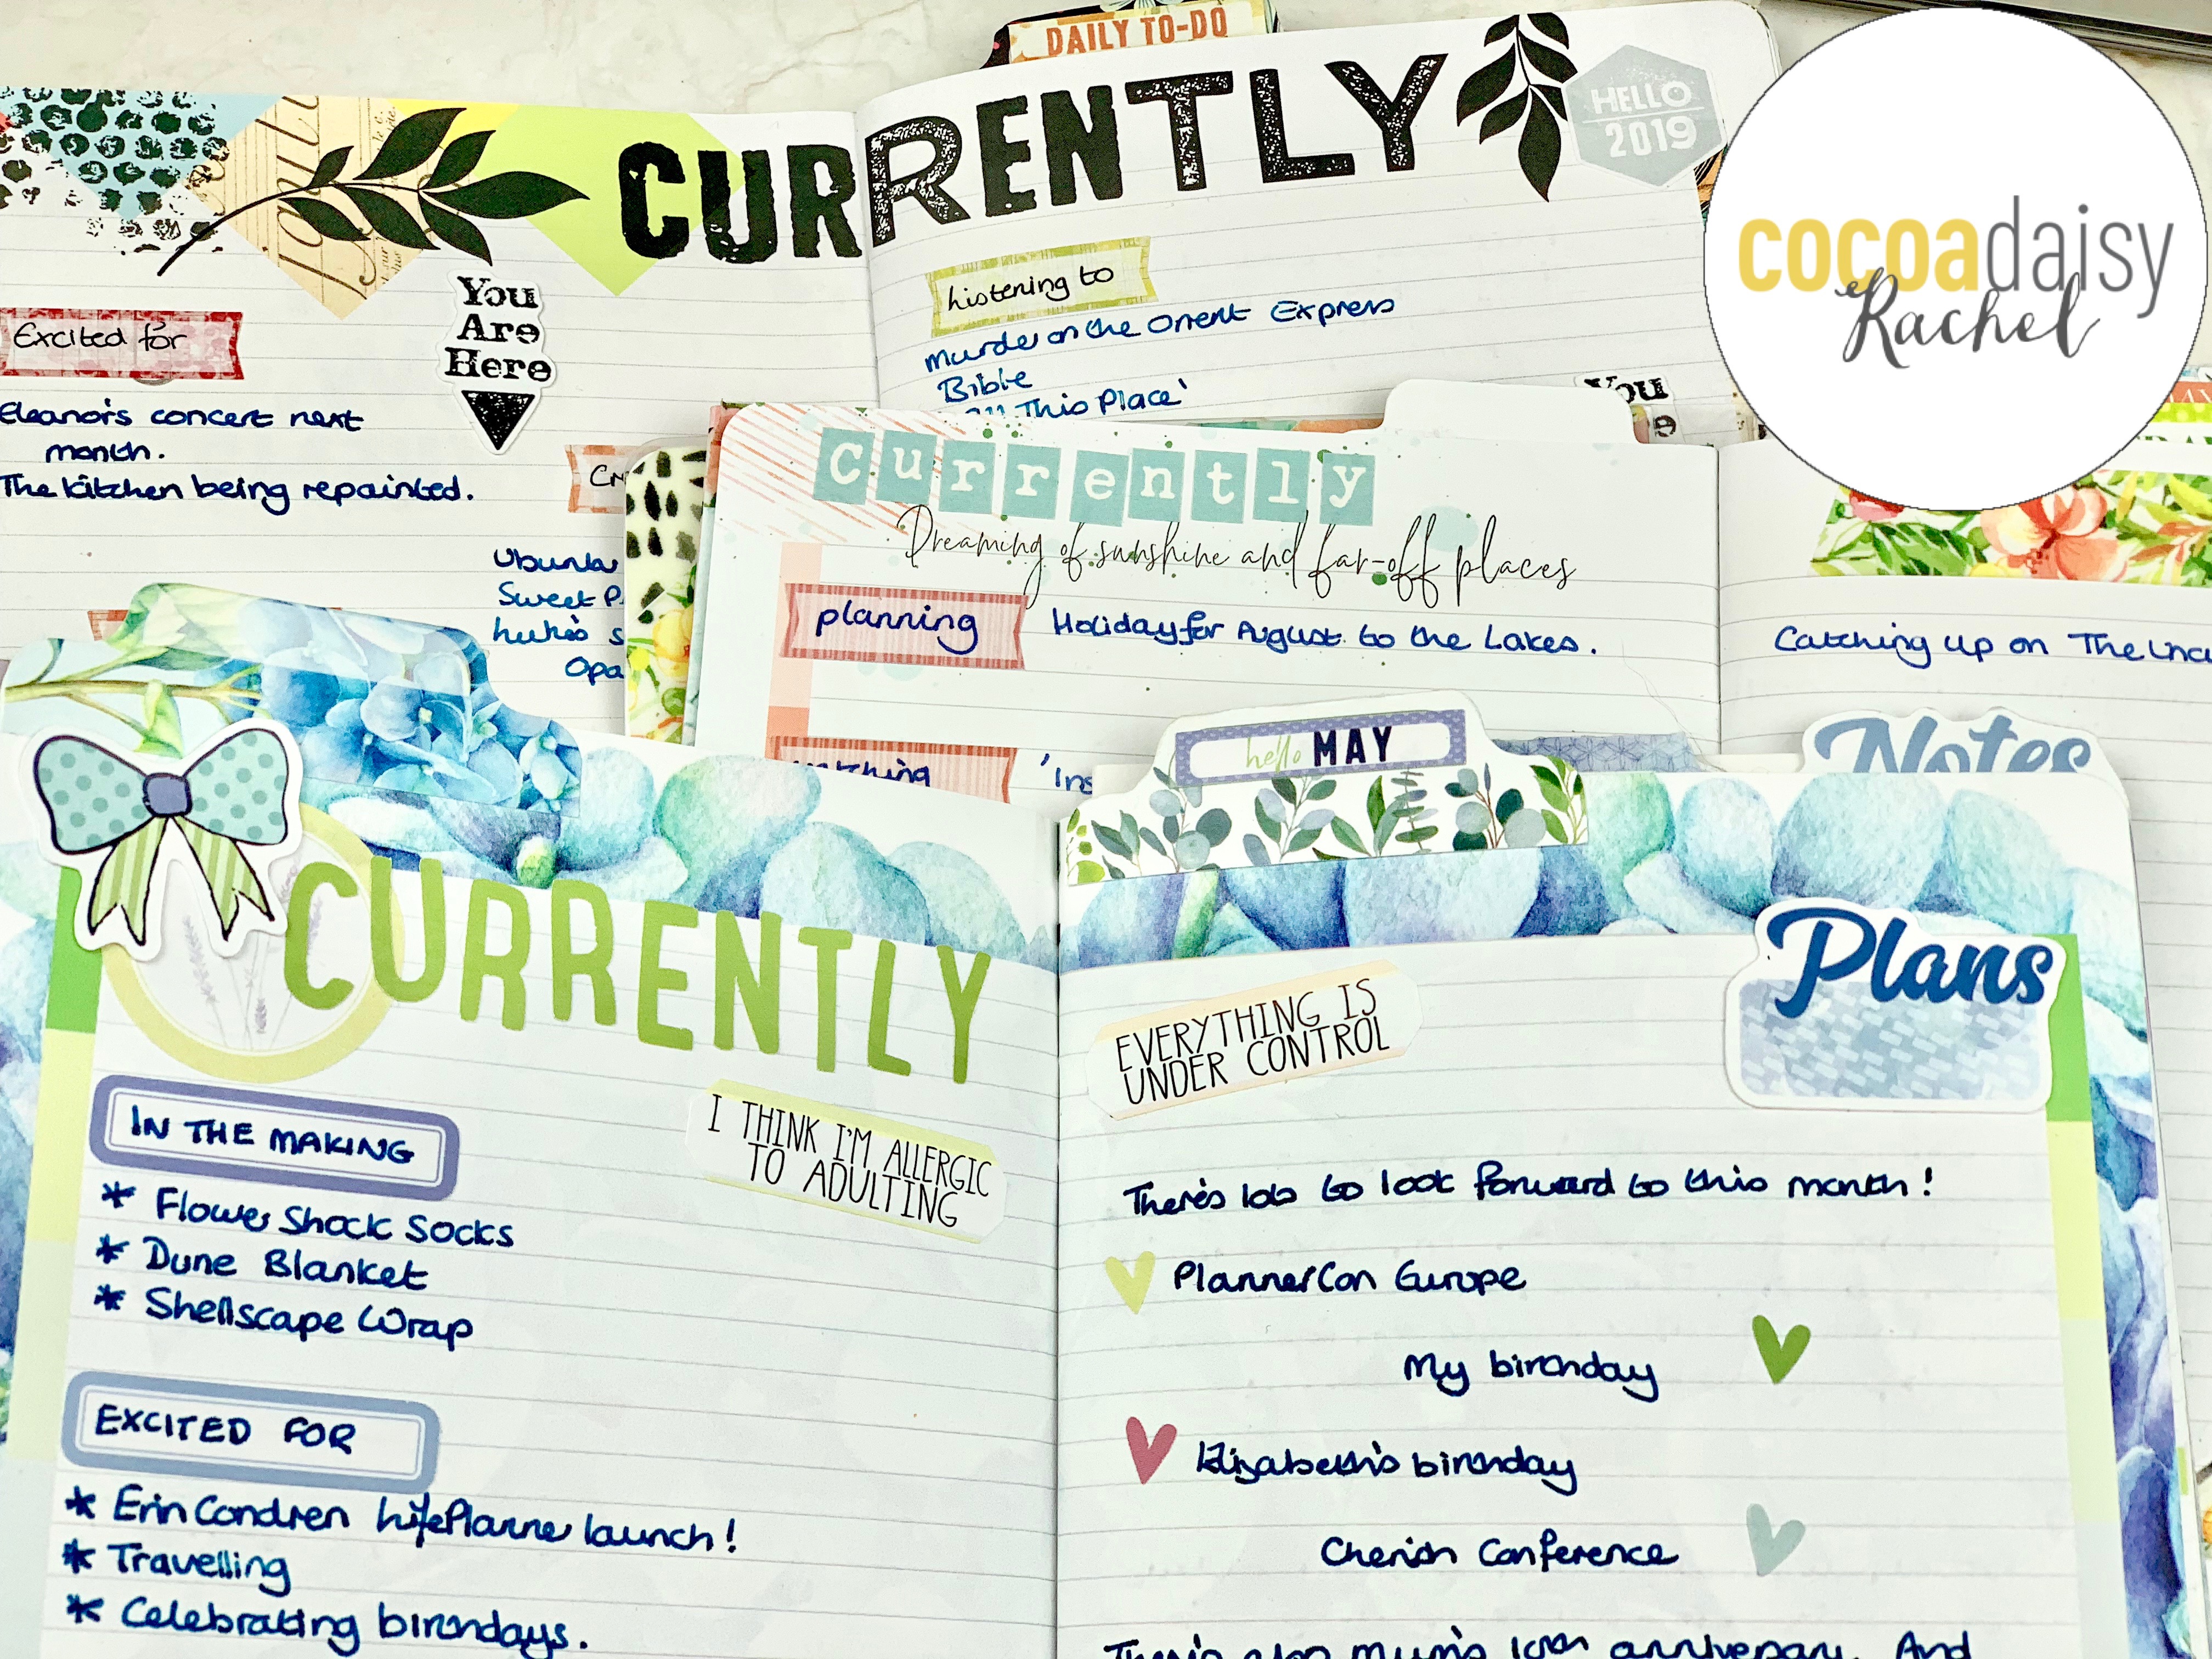 DAILY TO-DO
CURRENTLY
HELLO
2019
cocoadaisy
Rachel
Excited for
You
Are
Here
Eleanor's concert next
month.
The kitchen being repainted.
Listening to
Murder on the Orient Express
Bible
This Place'
You
Sweet P
Luke's s
Opa
Currently
Dreaming of sunshine and far-off places
planning
Holiday for August to the Lakes.
Catching up on The
Notes
hello MAY
CURRENTLY
I THINK I'M ALLERGIC
TO ADULTING
IN THE MAKING
* Flower Shack Socks
* Dune Blanket
* Shellscape Wrap
EXCITED FOR
* Erin Condren LifePlanner launch!
* Travelling
* Celebrating birthdays.
Plans
EVERYTHING IS
UNDER CONTROL
There's lots to look forward to this month!
PlannerCon Europe
My birthday
Elizabeth's birthday
Cherish Conference
There's also mum's 10th anniversary. And